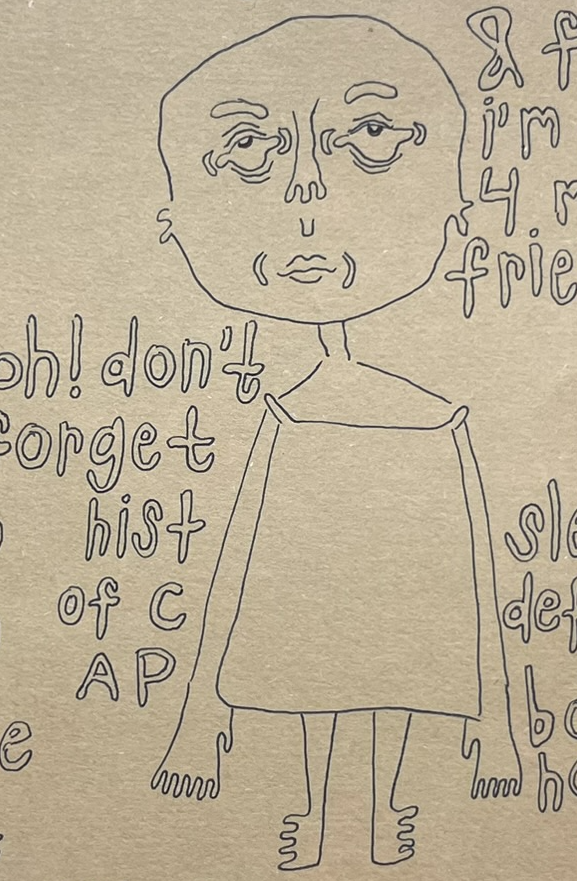 & f
i'm
4 r
frie
oh! don't
forget
hist
of C
AP
e
sle
def
bo
ho